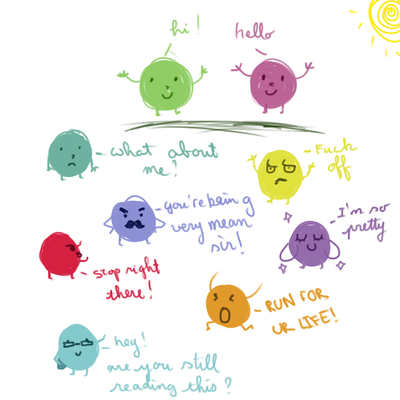 hi!
hello
what about
me?
Fuck
off
you're being
very mean
sir!
I'm so
pretty
stop right
there!
RUN FOR
UR LIFE!
hey!
are you still
reading this?